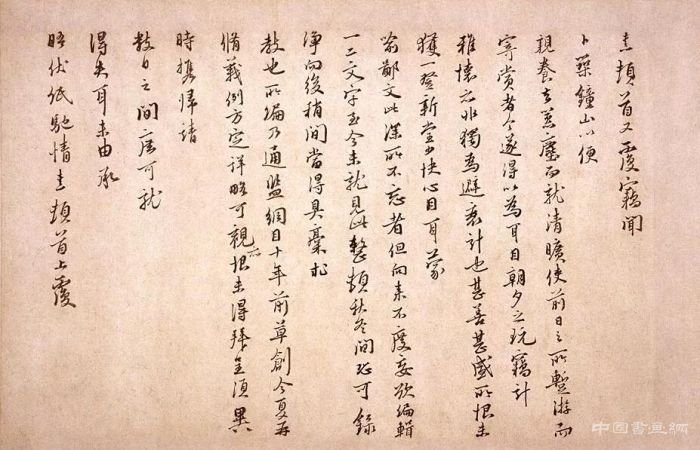 熹頓首又覆竊聞
卜築鐘山以便
親養去囂塵而就清曠使前日之所暫游而
寄賞者今遂得以為耳目朝夕之玩竊計
雅懷亦非獨為避衰計也甚善甚盛所恨未
獲一登新堂少快心目耳蒙
喻鄙文此深所不忘者但向来不度妄欲編輯
一二文字至今未就見此整頓秋冬間恐可錄
淨向後稍間當得具稾求
教也所編乃通監綱目十年前草創今夏再
脩義例方定詳略可觀亦恨未得拜呈須異
時攜歸請
數日之間庶可就
得失耳未由承
晤伏紙馳情熹頓首上覆
中国書画網